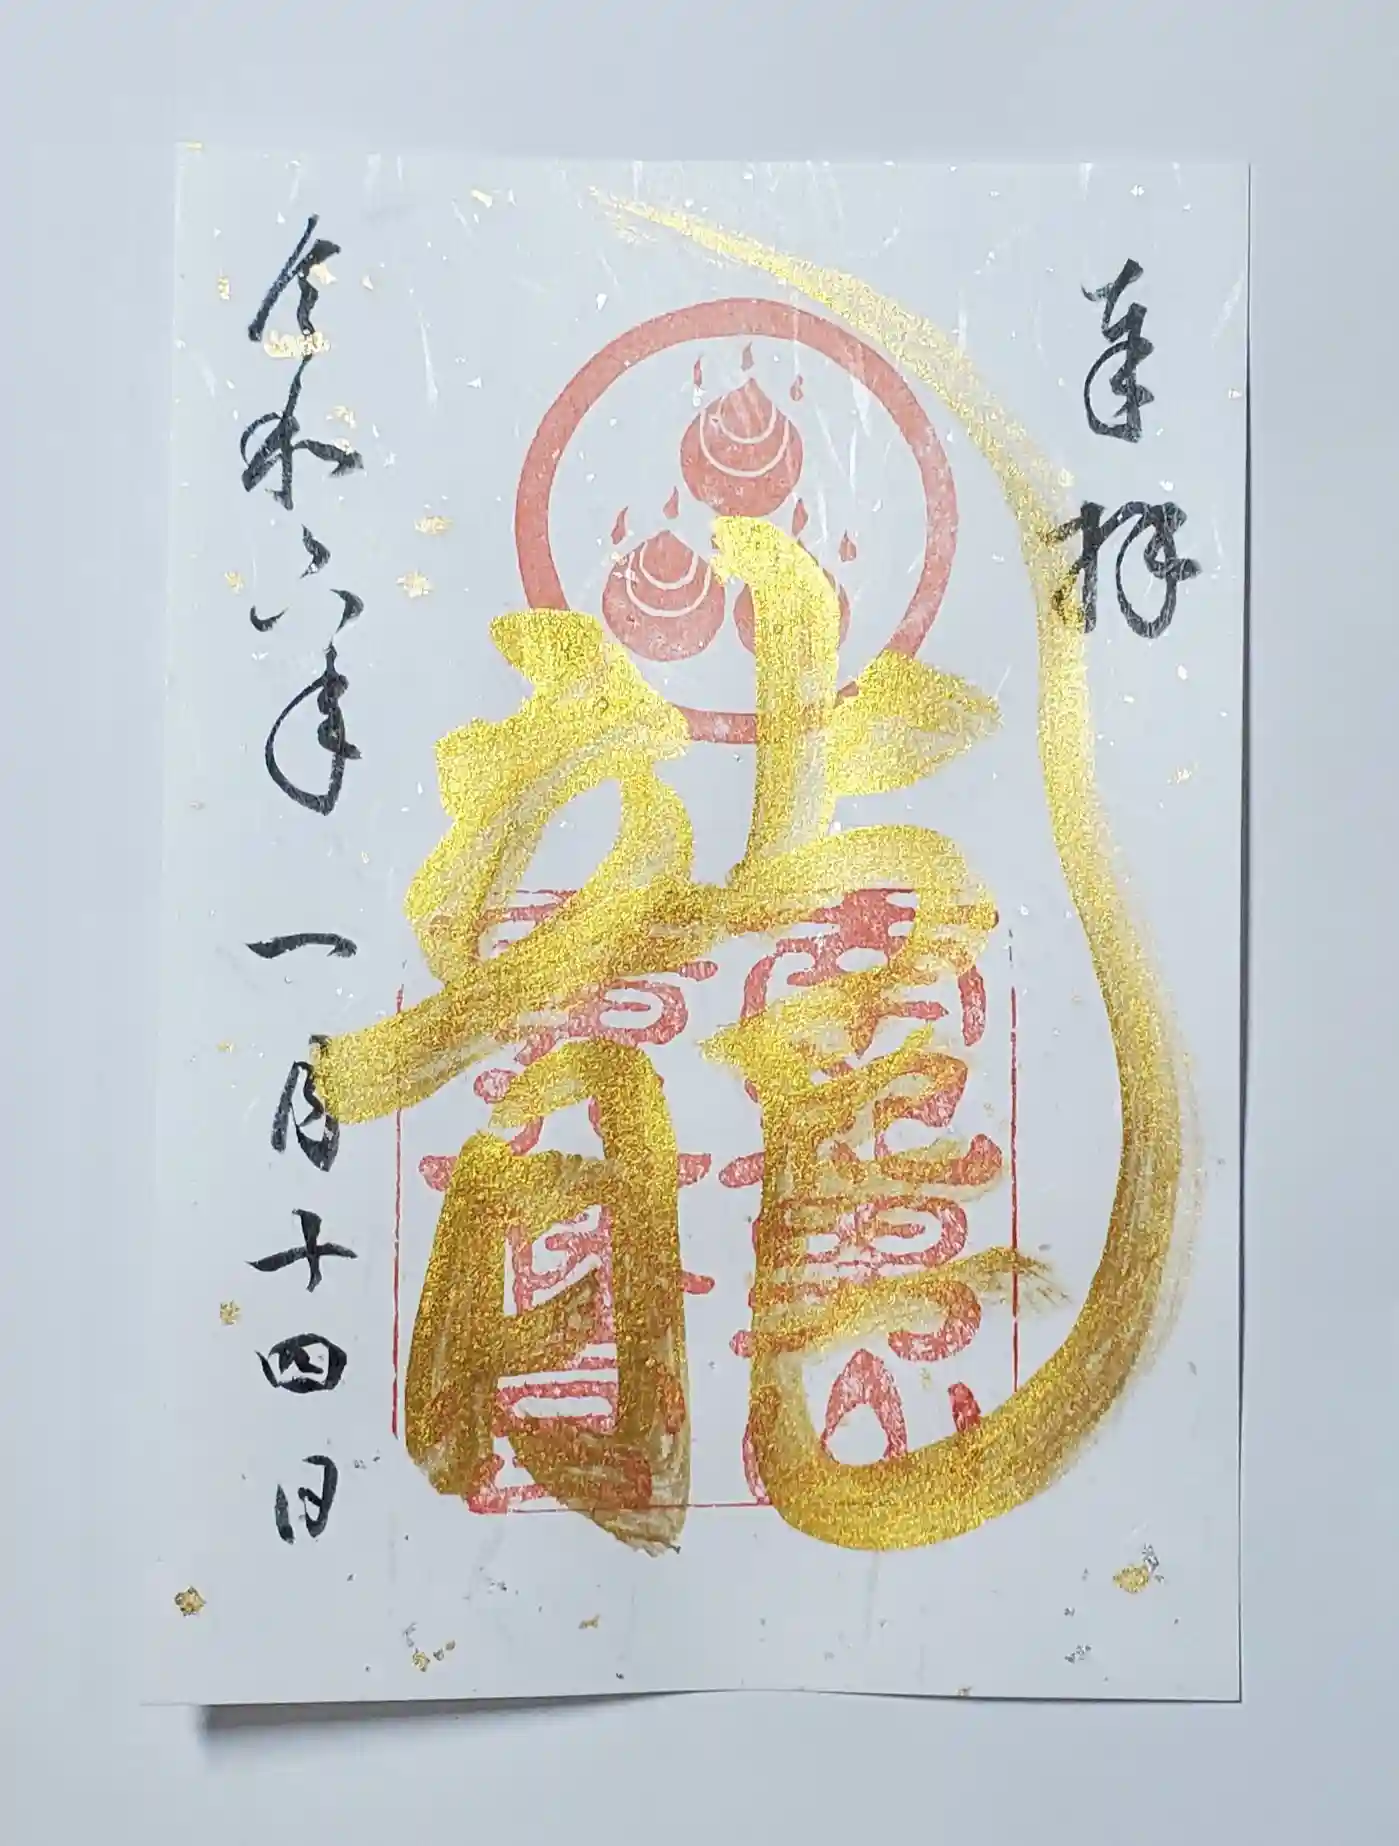 奉拝
龍
令和六年一月十四日